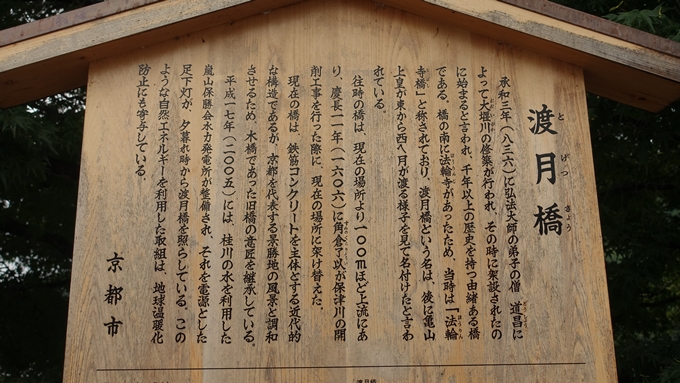 渡月橋
とげつきょう
承和三年（八三六）に弘法大師の弟子の僧　道昌に
どうしょう
よって大堰川の修築が行われ、その時に架設されたの
おおいがわ
に始まると言われ、千年以上の歴史を持つ由緒ある橋
である。橋の南に法輪寺があったため、当時は「法輪
ほうりんじ
ほうりん
寺橋」と称されており、渡月橋という名は、後に亀山
上皇が東から西へ月が渡る様子を見て名付けたと言わ
れている。
往時の橋は、現在の場所より一〇〇mほど上流にあ
り、慶長一一年（一六〇六）に角倉了以が保津川の開
削工事を行った際に、現在の場所に架け替えた。
現在の橋は、鉄筋コンクリートを主体とする近代的
な構造であるが、京都を代表する景勝地の風景と調和
させるため、木橋であった旧橋の意匠を継承している。
平成一七年（二〇〇五）には、桂川の水を利用した
嵐山保勝会水力発電所が整備され、それを電源とした
足下灯が、夕暮れ時から渡月橋を照らしている。この
ような自然エネルギーを利用した取組は、地球温暖化
防止にも寄与している。
京都市
渡月橋